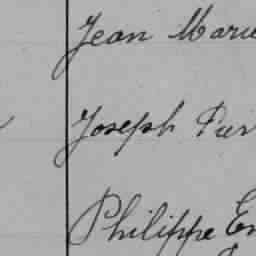 Jean Marie
Joseph Pier
Philippe Em